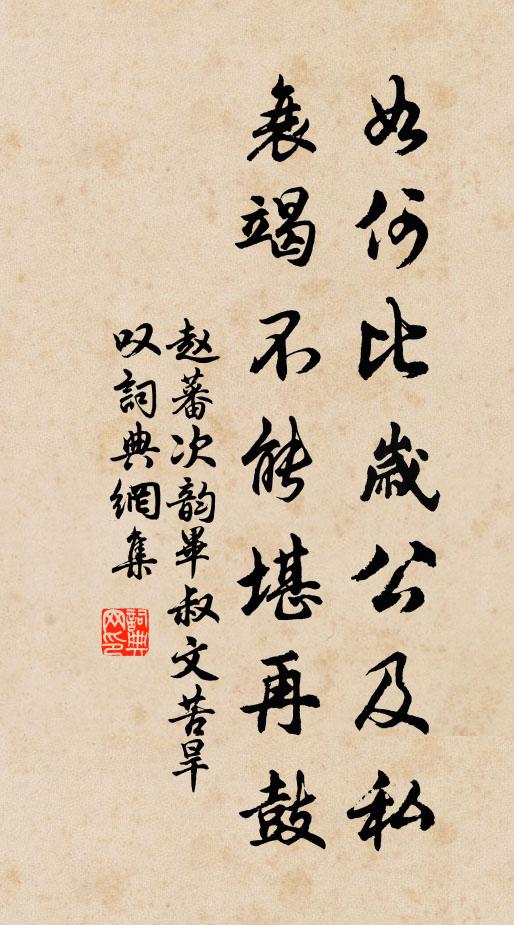 如何比歲公及私
衰竭不能堪再鼓
赵蕃次韵畢叔文苦旱
叹詞典網集
詞典
网印